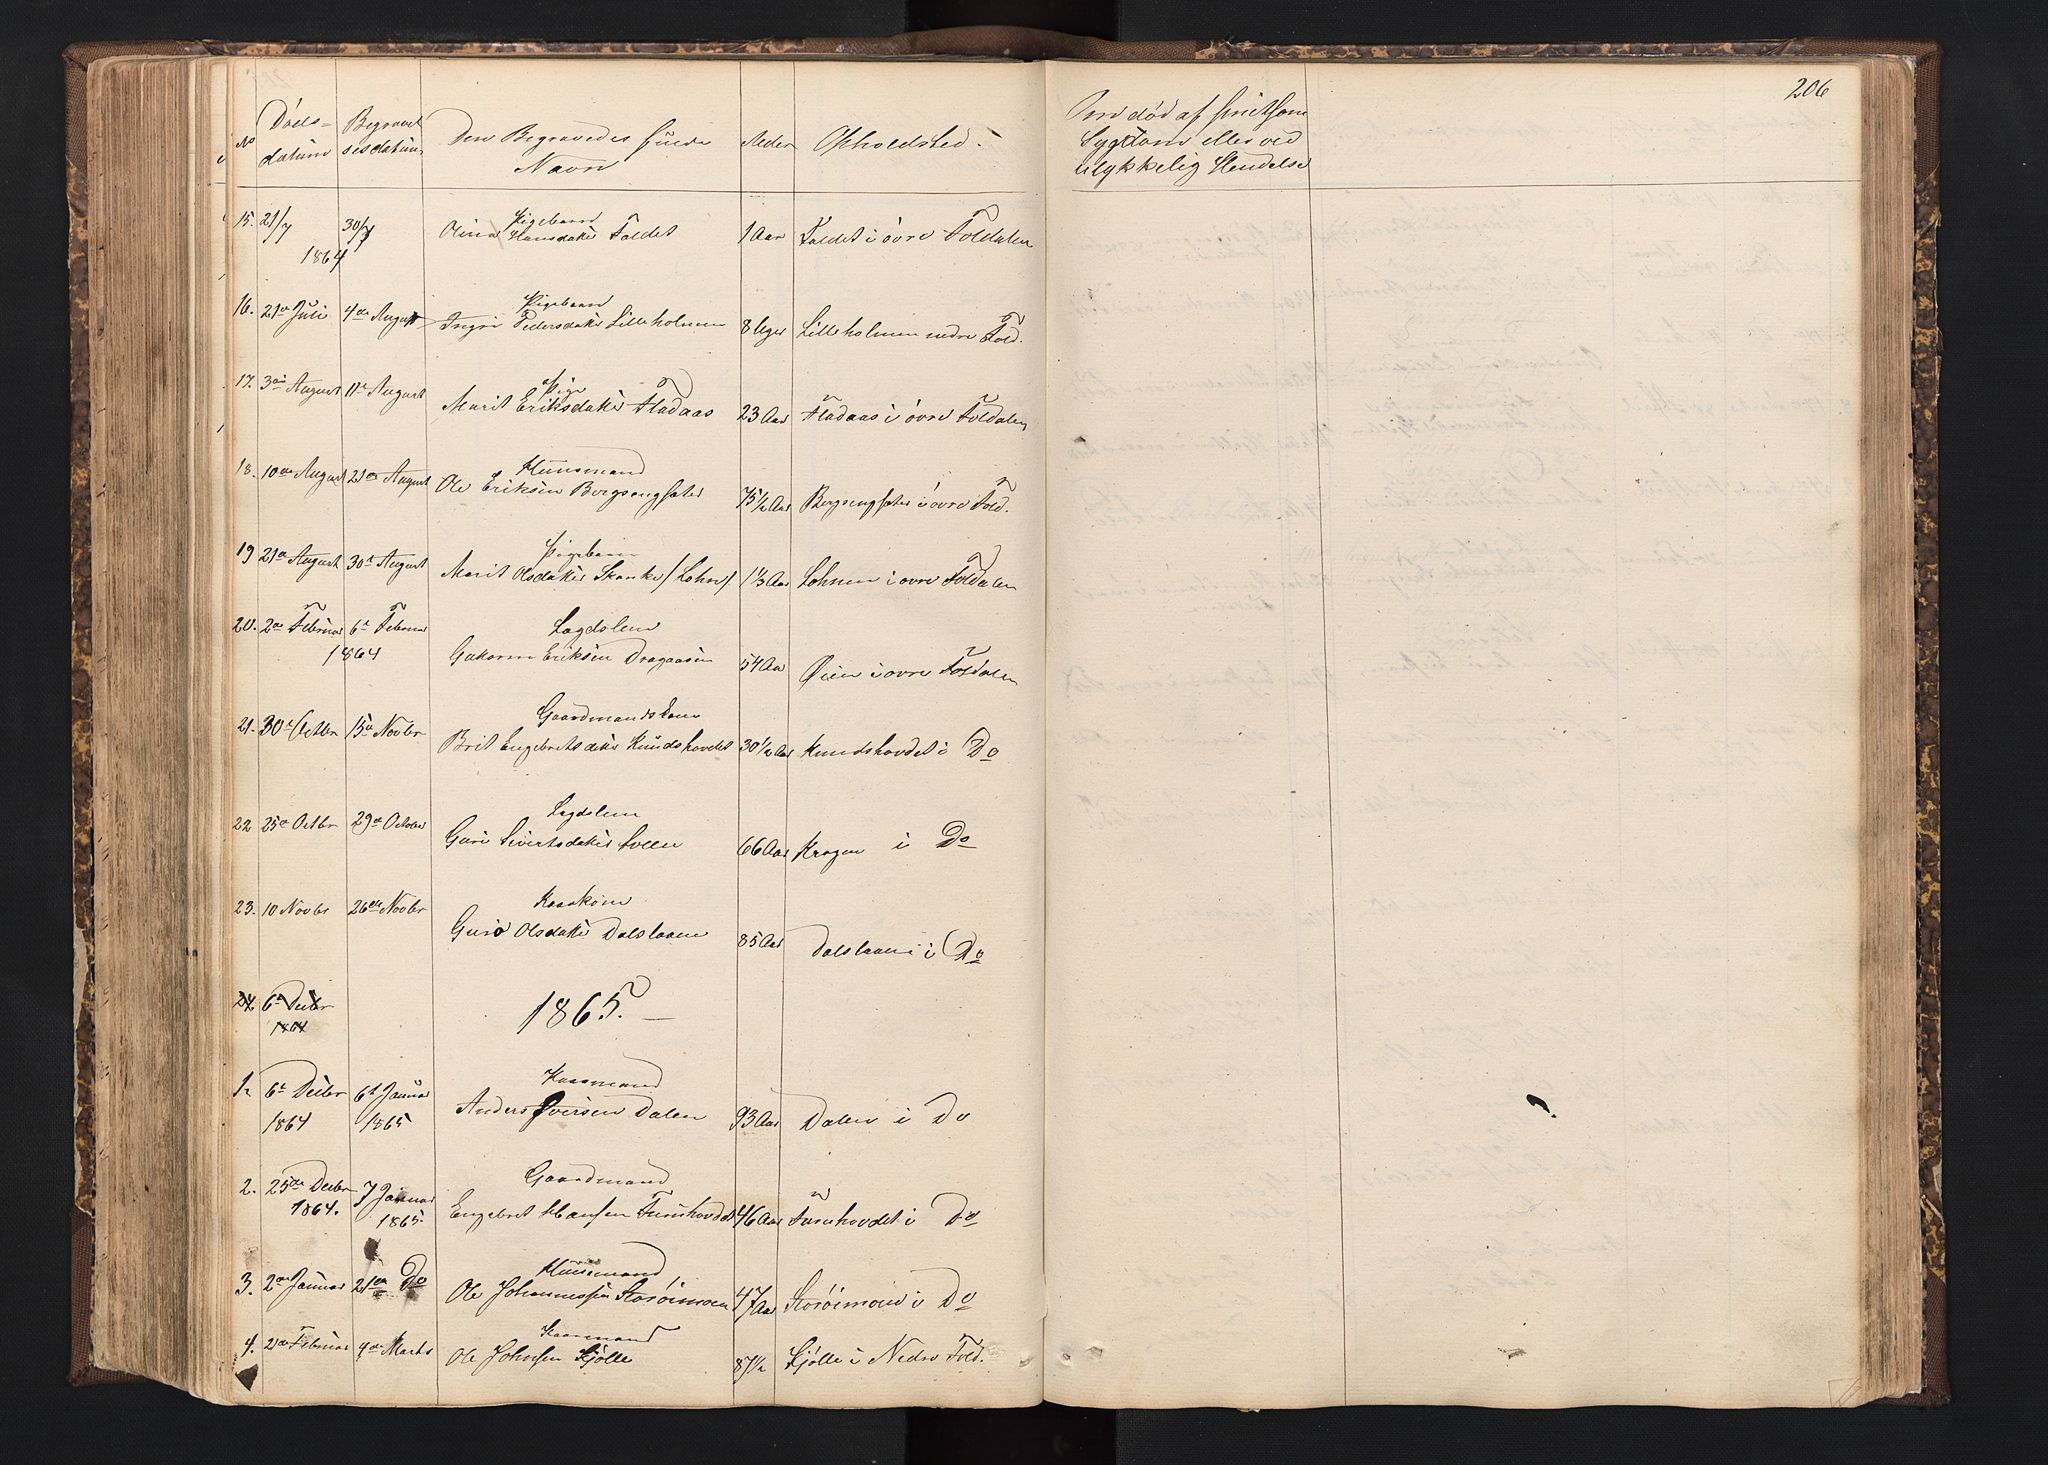 206
No Døds- datum Begravel sesdatum Den Begravedes fulde Navn Alder Opholdsted. Om død af smitsom Sygdom eller ved ulykkelig Hendelse
15. 21/7 30/7 Pigebarn 1 Aar Foldet i øvre Foldalen
1864 Olina Hansdatter Foldet
16. 21de Juli 4de August Pigebarn
Ingri Pedersdatter Lilleholmen 8 Uger Lilleholmen nedre Fold.
17. 3die August 11te August Pige
Marit Eriksdatter Fladaas 23 Aar Fladaas i øvre Foldalen
18. 10de August 21de August Huusmand
Ole Eriksen Bergsengsæter 75 1/2 Aar Bergsengsæter i øvre Fold.
19 21de August 30te August Pigebarn
Marit Olsdatter Skanke / Lohn / 1 1/3 Aar Lohnen i øvre Foldalen
20. 2den Februar 6te Februar Lægdslem
1864 Eriksen Dragaasen 54 Aar Øien i øvre Foldalen
21. 30te Octbr 15de Novbr Gaardmandskone
Brit Engebretsdatter Knudshovdet 30 1/2 Aar Knudshovdet i Do
22 25de Octbr 29de October Lægdslem
Guri Sivertsdatter 66 Aar Krogen i Do
23. 10 Novbr 26de Novbr Kaarkone
Guro Olsdatter Dalslaaen 85 Aar Dalslaaen i Do
24. 6te Decbr
1864
1865.
1. 6te Decbr 6te Januar Kaarmand
1864 1865 Anders Iversen Dalen 93 Aar Dalen i Do
2. 25de Decbr 7 Januar Gaardmand
1864. 1865. Engebret Hansen Furuhovdet 46 Aar Furuhovdet i Do
3. 2den Januar 21de Do Huusmand
Ole Johannessen Storøimoen 47 Aar Storøimoen i Do
4. 2den Februar 4de Marts Kaarmand
Ole Johnsen Kjølle 87 1/2 Kjølle i Nedre Fold.